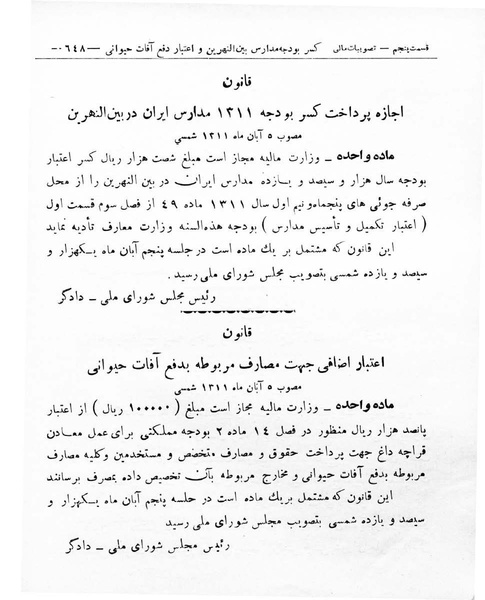 قسمت پنجم – تصویبات مالی کسر بودجه مدارس بین‌النهرین و اعتبار دفع آفات حیوانی –۰۶۴۸-
قانون
اجازه پرداخت کسر بودجه ۱۳۱۱ مدارس ایران در بین النهرین
مصوب ۵ آبان ماه ۱۳۱۱ شمسی
ماده واحده – وزارت مالیه مجاز است مبلغ شصت هزار ریال کسر اعتبار
بودجه سال هزار و سیصد و یازده مدارس ایران در بین النهرین را از محل
صرفه جوئی های پنجماه‌ونیم اول سال ۱۳۱۱ ماده ۴۹ از فصل سوم قسمت اول
( اعتبار تکمیل و تأسیس مدارس ) بودجه هذه‌السنه وزارت معارف تأدیه نماید
این قانون که مشتمل بر یك ماده است در جلسه پنجم آبان ماه یکهزار و
سیصد و یازده شمسی بتصویب مجلس شورای ملی رسید .
رئیس مجلس شورای ملی – دادگر
قانون
اعتبار اضافی جهت مصارف مربوطه بدفع آفات حیوانی
مصوب ۵ آبان ماه ۱۳۱۱ شمسی
ماده واحده – وزارت مالیه مجاز است مبلغ ( ۱۰۰۰۰۰ ریال ) از اعتبار
پانصد هزار ریال منظور در فصل ۱۴ ماده ۲ بودجه مملکتی برای عمل معادن
قراچه داغ جهت پرداخت حقوق و مصارف متخصص و مستخدمین وکلیه مصارف
مربوطه بدفع آفات حیوانی و مخارج مربوطه بآن تخصیص داده بمصرف برسانند
این قانون که مشتمل بریك ماده است در جلسه پنجم آبان ماه یکهزار و
سیصد و یازده شمسی بتصویب مجلس شورای ملی رسید
رئیس مجلس شورای ملی – دادگر